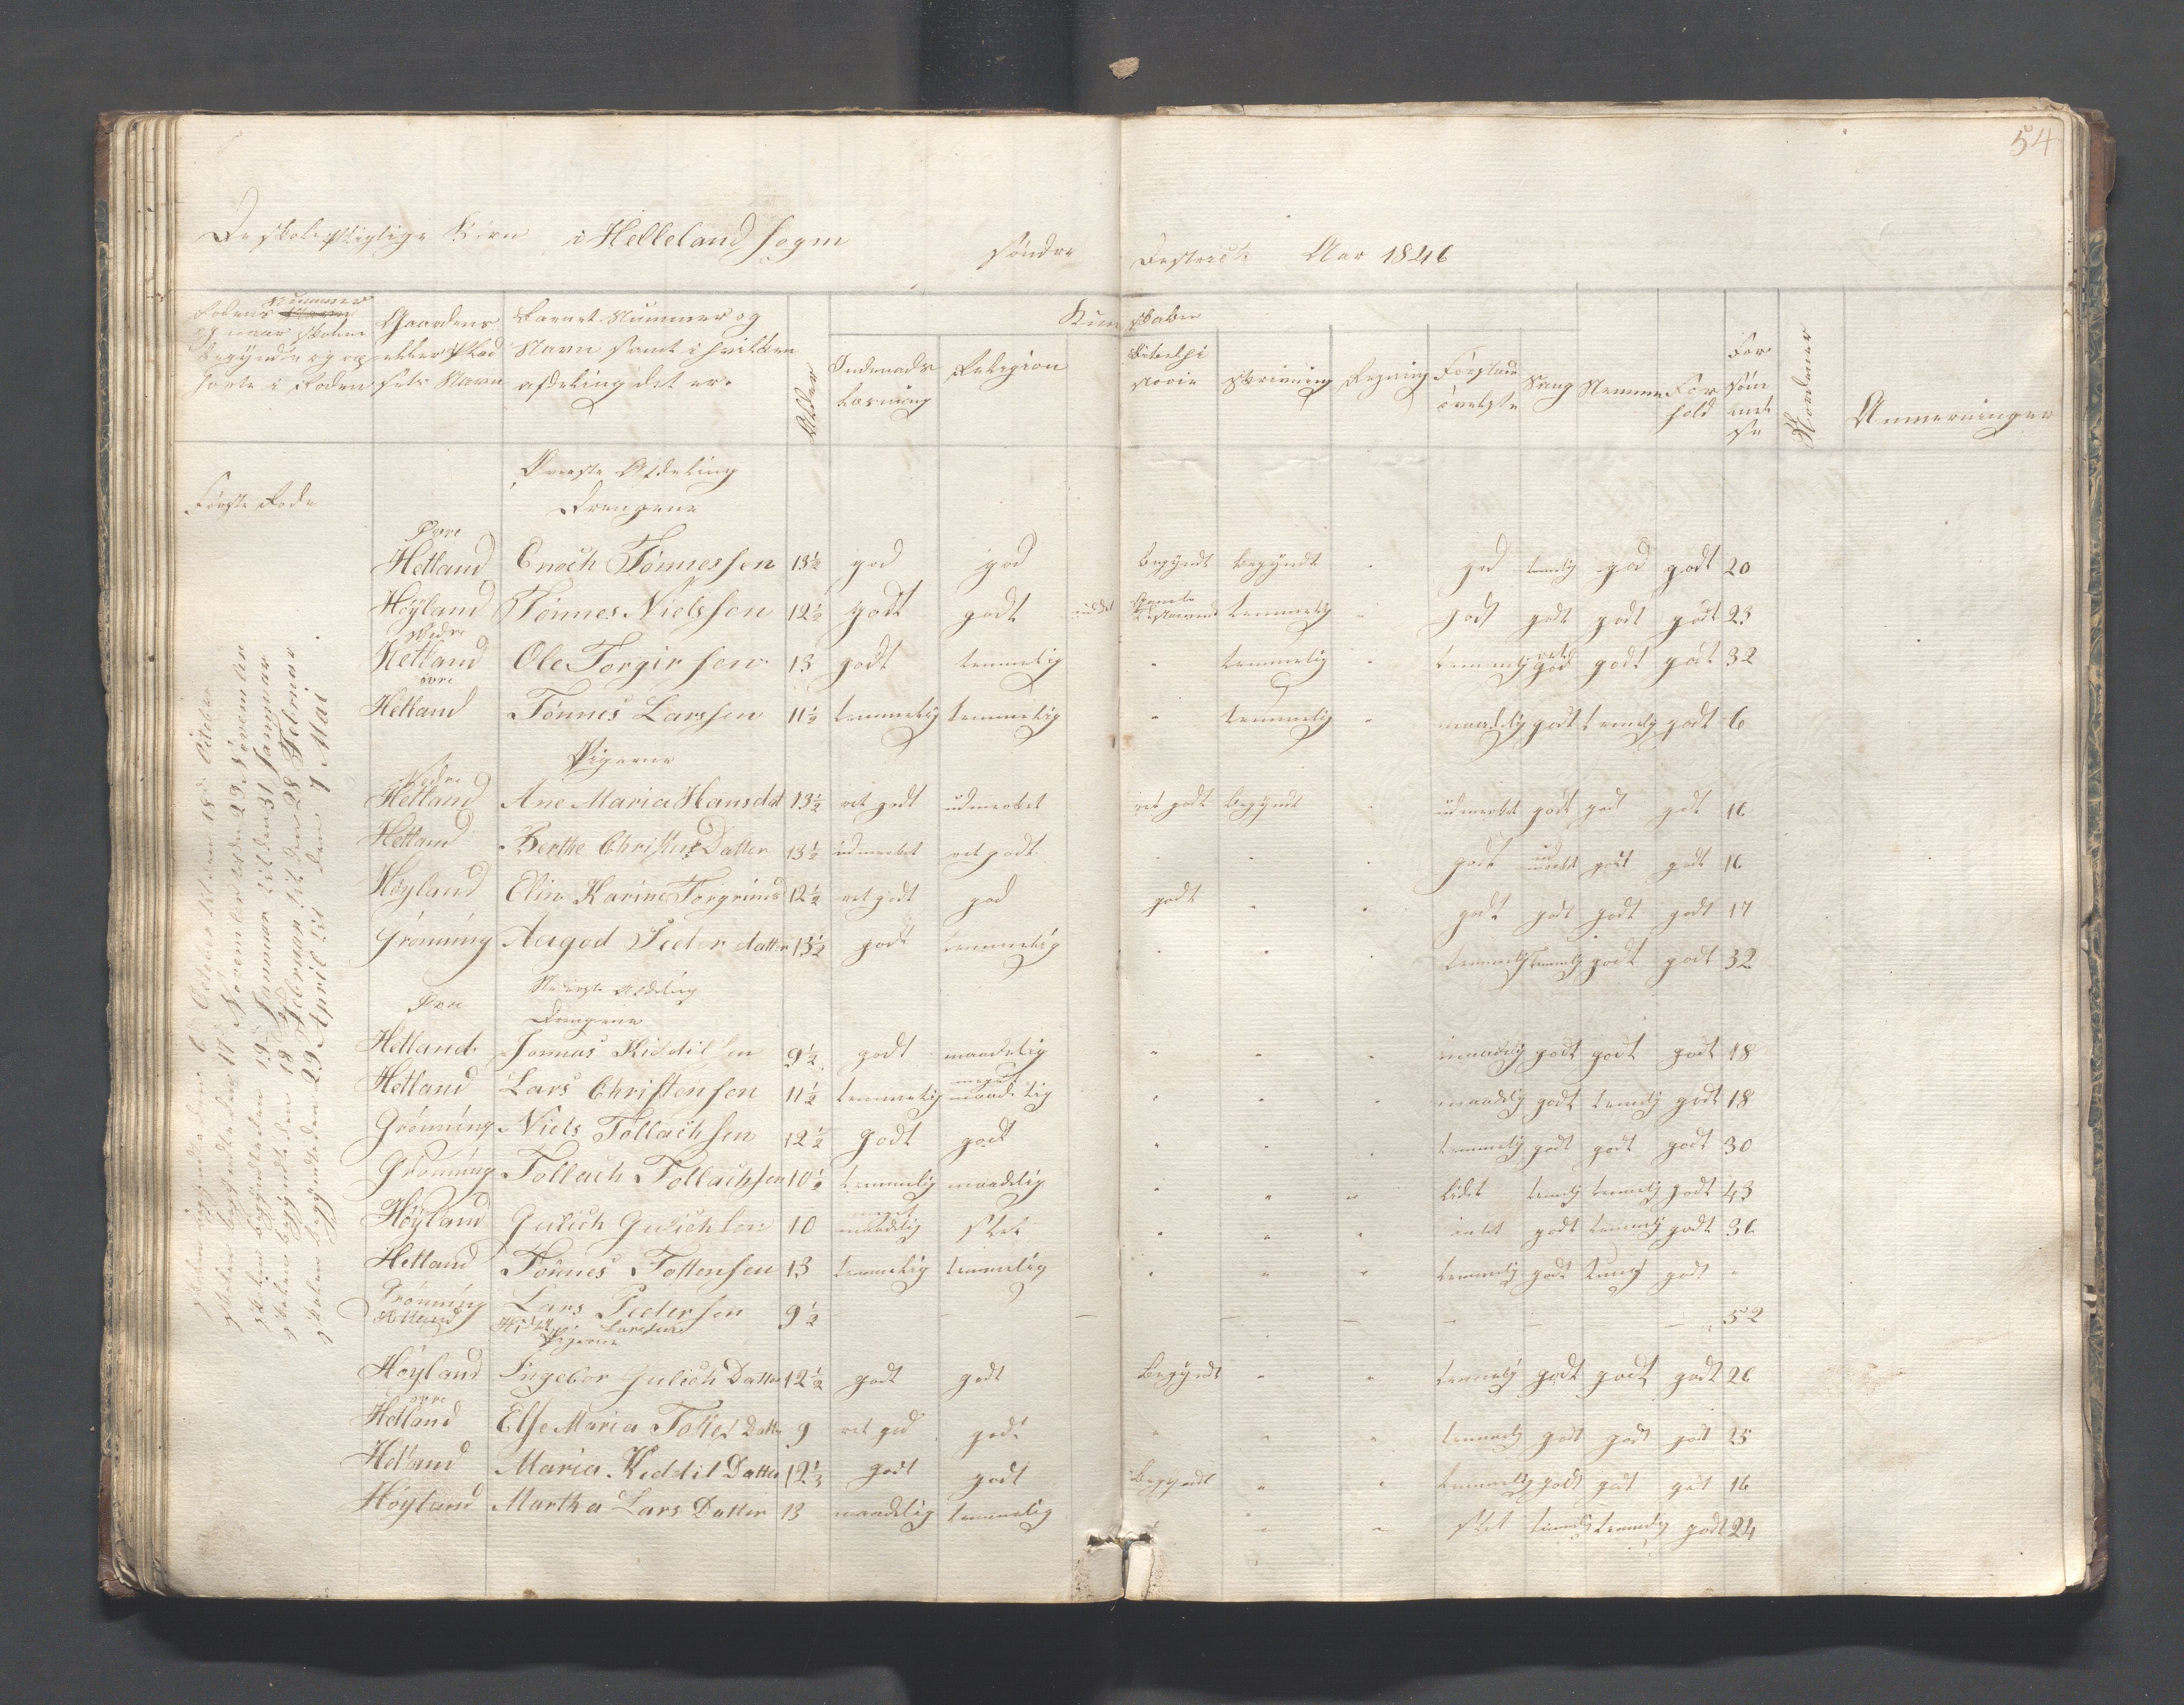 54
De skolepligtige Børn i Helleland Sogn søndre District Aar 1846
Rodens Nummer og naar Skolen begyndte og ophørte i Roden
Gaardens eller Pladsets Navn
Barnets Nummer og Navn samt i hvilken afdeling det er.
Alder
Kundskaber
Indenads Læsning
Religion
Bibelhistorie
Skrivning
Regning
Forstandsøvelse
Sang
Nemme
Forhold
Forsømmelse
Anmerninger
Første Rode
Øverste Afdeling
Drengene
Øvre
Hetland Enoch Tønnessen 13½ god god begyndt begyndt god temelig god godt 20
Høyland Tønnes Nielssen 12½ godt godt temmelig godt godt godt godt 23
Nedre
Hetland Ole Torgirsen 13 godt temmelig temmelig temmelig ret god godt godt 32
øvre
Hetland Tønnes Larssen 11½ temmelig temmelig temmelig maadelig godt temelig godt 6
Pigerne
Nedre
Hetland Ane Maria Hansdat 13½ ret godt udmerket ret godt begyndt udmerket godt godt godt 16
Hetland Berthe Christine Datter 13½ udmerket ret godt godt udmerkt godt godt 16
Høyland Elin Karine Torgrims 12½ ret godt god godt godt godt godt godt 17
Grønning Aagod Peder datter 13½ godt temmelig temmelig temmelig godt godt 32
Nederste Afdeling
Øvre
Drengene
Hetland Jonnas Kiddilsen 9½ godt maadelig maadelig godt godt godt 18
Hetland Lars Christensen 11½ temmelig meget maadelig maadelig godt temelig godt 18
Grønning Niels Tollachsen 12½ godt godt temmelig godt godt godt 30
Grønning Tollach Tollachsen 10½ temmelig maadelig lidet temelig temmelig godt 43
Høyland Gulich Gulichsen 10 meget maadelig slet intet godt temmelig godt 36
Hetland Tønnes Tollensen 13 temmelig temmelig temmelig godt temelig godt
Grønning Lars Pedersen 9½ 52
Hetland Larssen
Pigerne
Høyland Ingebor Gulich Datter 12½ godt godt begyndt temmelig godt godt godt 26
øvre
Hetland Else Maria Tolles Datter 9 ret god godt temmelig godt godt godt 25
Hetland Maria Kiddil Datter 12½ godt godt begyndt temmelig godt godt godt 16
Høyland Martha Lars Datter 13 maadelig temmelig slet temelig temmelig godt 24
Skolen begyndte den 6 October til den 18de October
Skolen begyndte den 17 November til den 29 November
Skolen begyndte den 19 Januar til den 31 Januar
Skolen begyndte den 18 Februar til den 28 Februar
Skolen begyndte den 29 April til den 7 Mai